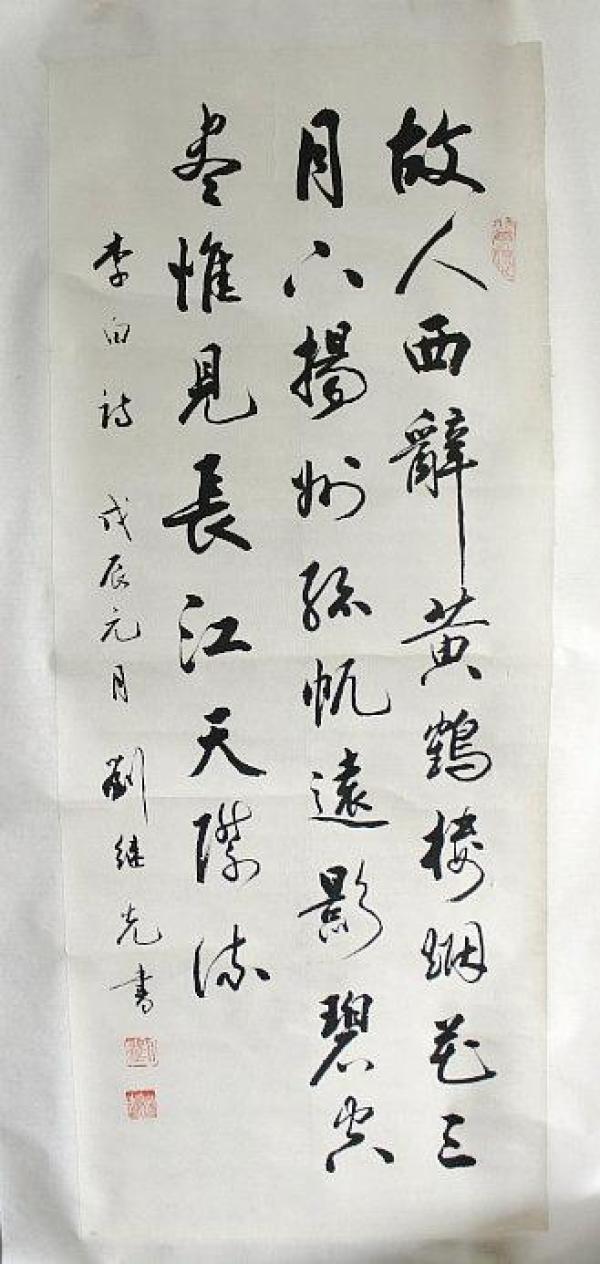 故人西辭黄鶴楼烟花三
月下揚州孤帆遠影碧空
尽惟見長江天際流
李白诗 戊辰元月 劉继先书